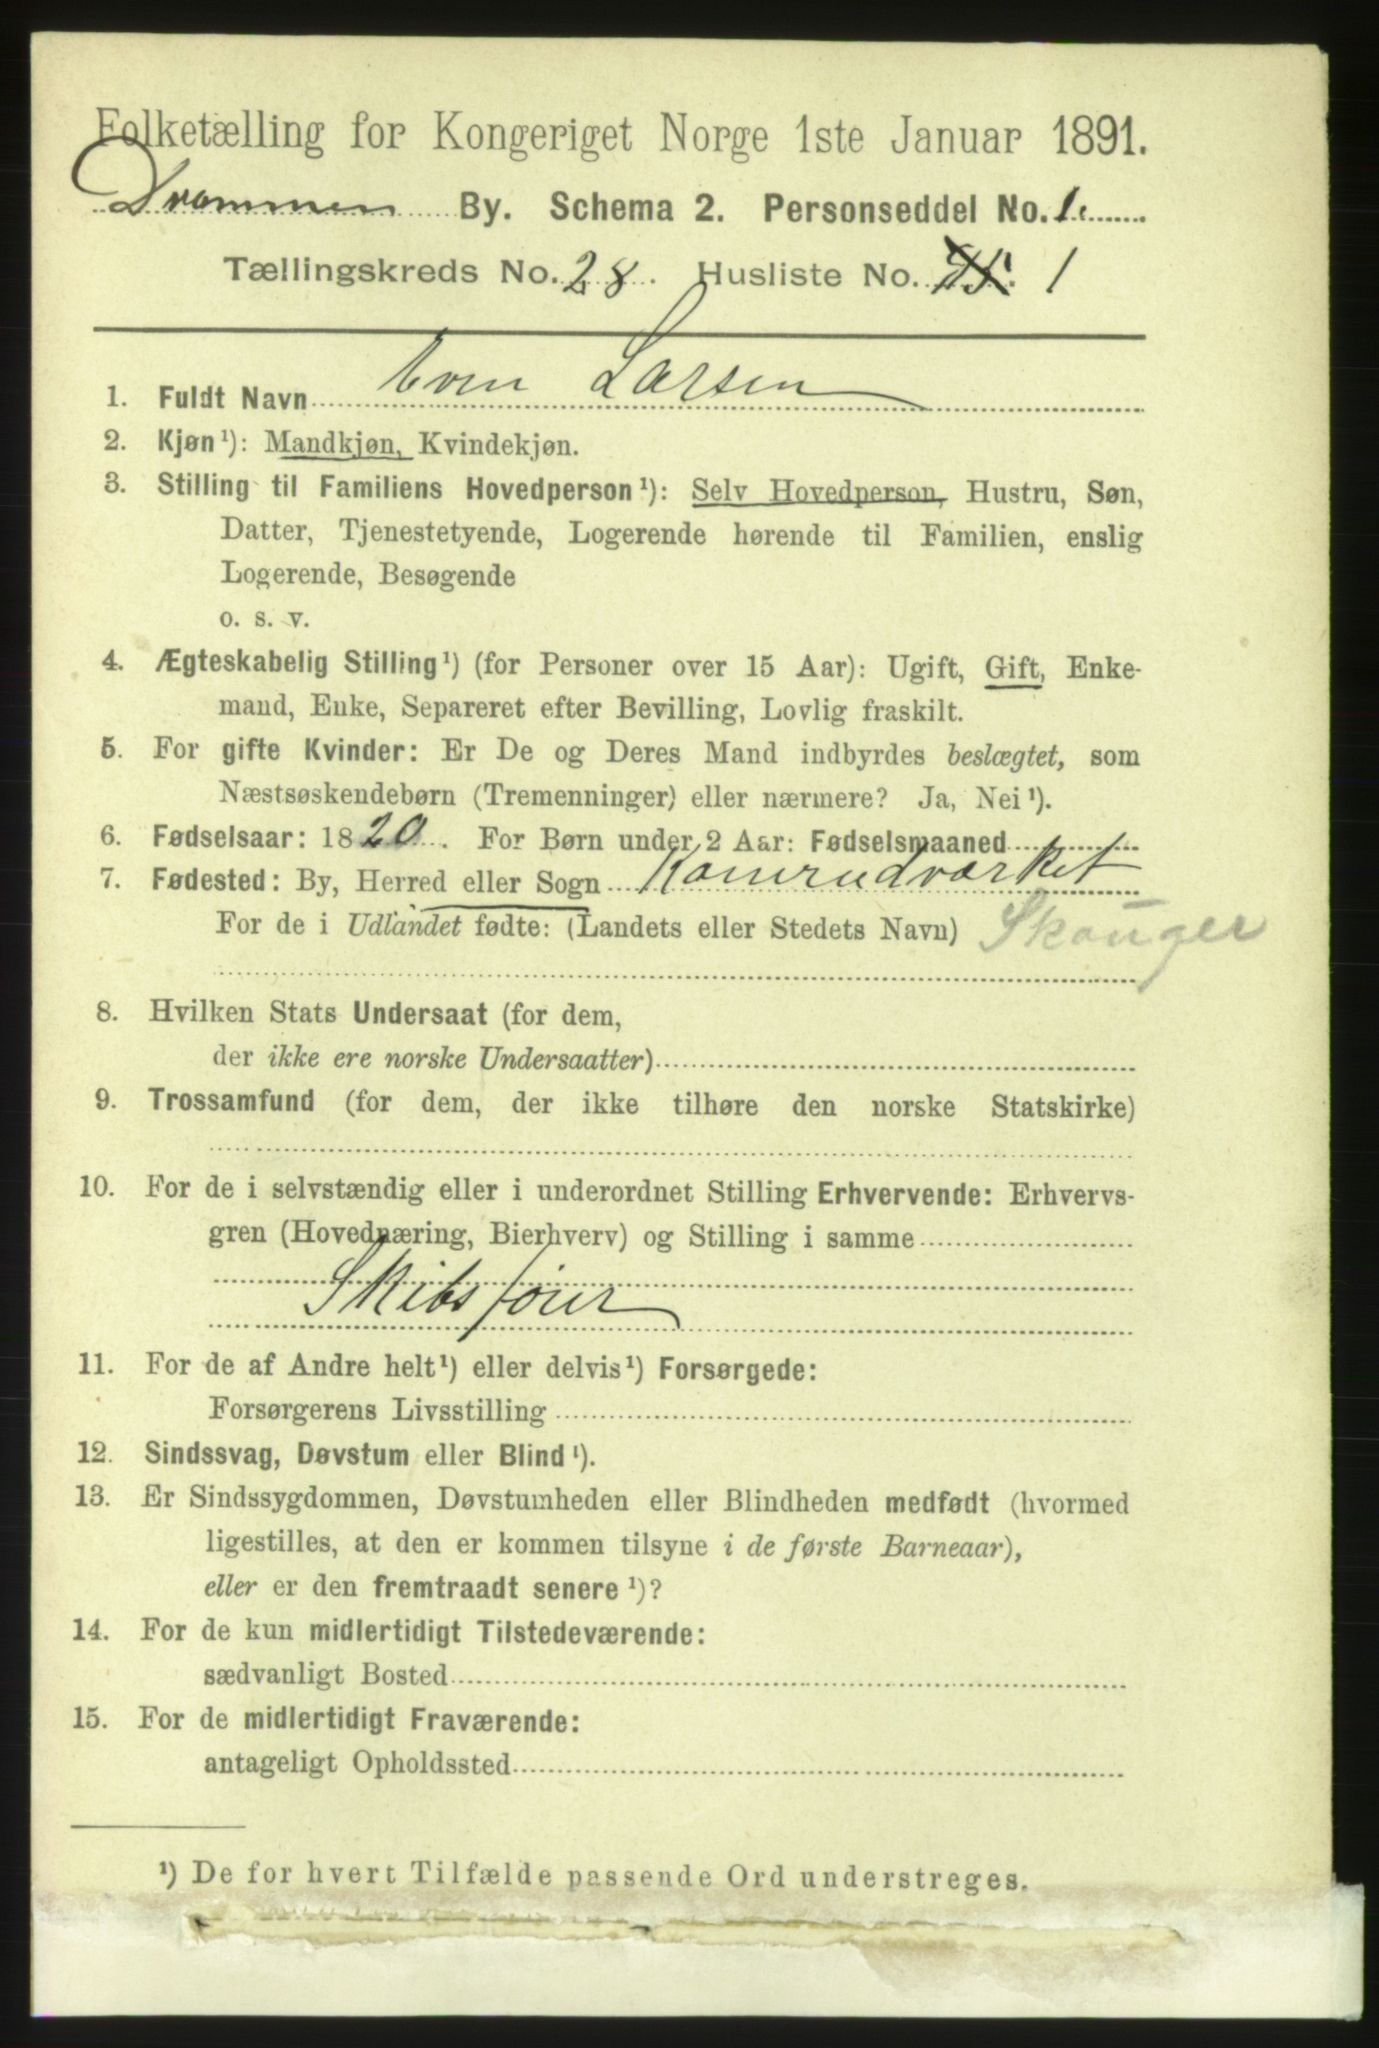 Folketælling for Kongeriget Norge 1ste Januar 1891.
Drammen By. Schema 2. Personseddel No. 1.
Tællingskreds No. 28. Husliste No. 1
1. Fuldt Navn Even Larsen
2. Kjøn¹): Mandkjøn, Kvindekjøn.
3. Stilling til Familiens Hovedperson¹): Selv Hovedperson, Hustru, Søn,
Datter, Tjenestetyende, Logerende hørende til Familien, enslig
Logerende, Besøgende
o. s. v.
4. Ægteskabelig Stilling¹) (for Personer over 15 Aar): Ugift, Gift, Enke-
mand, Enke, Separeret efter Bevilling, Lovlig fraskilt.
5. For gifte Kvinder: Er De og Deres Mand indbyrdes beslægtet, som
Næstsøskendebørn (Tremenninger) eller nærmere? Ja, Nei¹).
6. Fødselsaar: 1820. For Børn under 2 Aar: Fødselsmaaned
7. Fødested: By, Herred eller Sogn Konnerudværket
For de i Udlandet fødte: (Landets eller Stedets Navn) Skouger
8. Hvilken Stats Undersaat (for dem,
der ikke ere norske Undersaatter)
9. Trossamfund (for dem, der ikke tilhøre den norske Statskirke)
10. For de i selvstændig eller i underordnet Stilling Erhvervende: Erhvervs-
gren (Hovednæring, Bierhverv) og Stilling i samme
Skibsfører
11. For de af Andre helt¹) eller delvis¹) Forsørgede:
Forsørgerens Livsstilling
12. Sindssvag, Døvstum eller Blind¹).
13. Er Sindssygdommen, Døvstumheden eller Blindheden medfødt (hvormed
ligestilles, at den er kommen tilsyne i de første Barneaar),
eller er den fremtraadt senere¹)?
14. For de kun midlertidigt Tilstedeværende:
sædvanligt Bosted
15. For de midlertidigt Fraværende:
antageligt Opholdssted
¹) De for hvert Tilfælde passende Ord understreges.